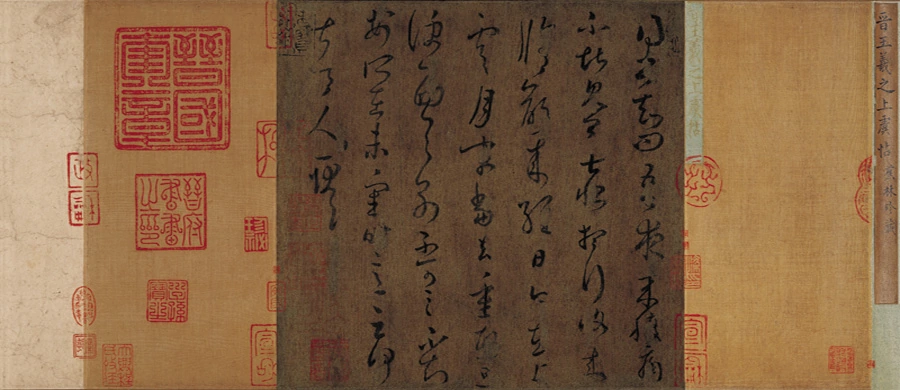 晉王羲之上虞帖
得書知問吾夜來腹痛
不堪見卿甚恨想行復來
脩齡來經日今在上
虞月末當去重熙旦
便西與別不可言不知
安所在未審時意云何
甚令人耿耿
晉國奎章
晉府書畫之印
政和